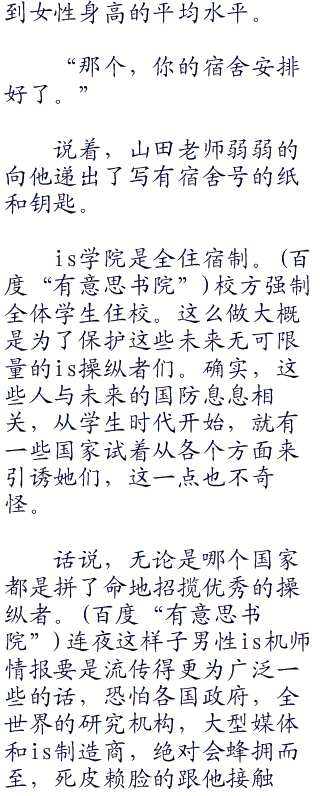 到女性身高的平均水平。
“那个，你的宿舍安排
好了。”
说着，山田老师弱弱的
向他递出了写有宿舍号的纸
和钥匙。
is学院是全住宿制。(百
度“有意思书院”)校方强制
全体学生住校。这么做大概
是为了保护这些未来无可限
量的is操纵者们。确实，这
些人与未来的国防息息相
关，从学生时代开始，就有
一些国家试着从各个方面来
引诱她们，这一点也不奇
怪。
话说，无论是哪个国家
都是拼了命地招揽优秀的操
纵者。(百度“有意思书
院”)连夜这样子男性is机师
情报要是流传得更为广泛一
些的话，恐怕各国政府，全
世界的研究机构，大型媒体
和is制造商，绝对会蜂拥而
至，死皮赖脸的跟他接触